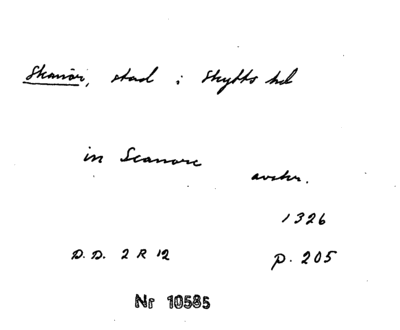 Skanör, stad i Skytts hd
in Scanore
avskr.
1326
D.D. 2 R 12
p. 205
Nr 10585